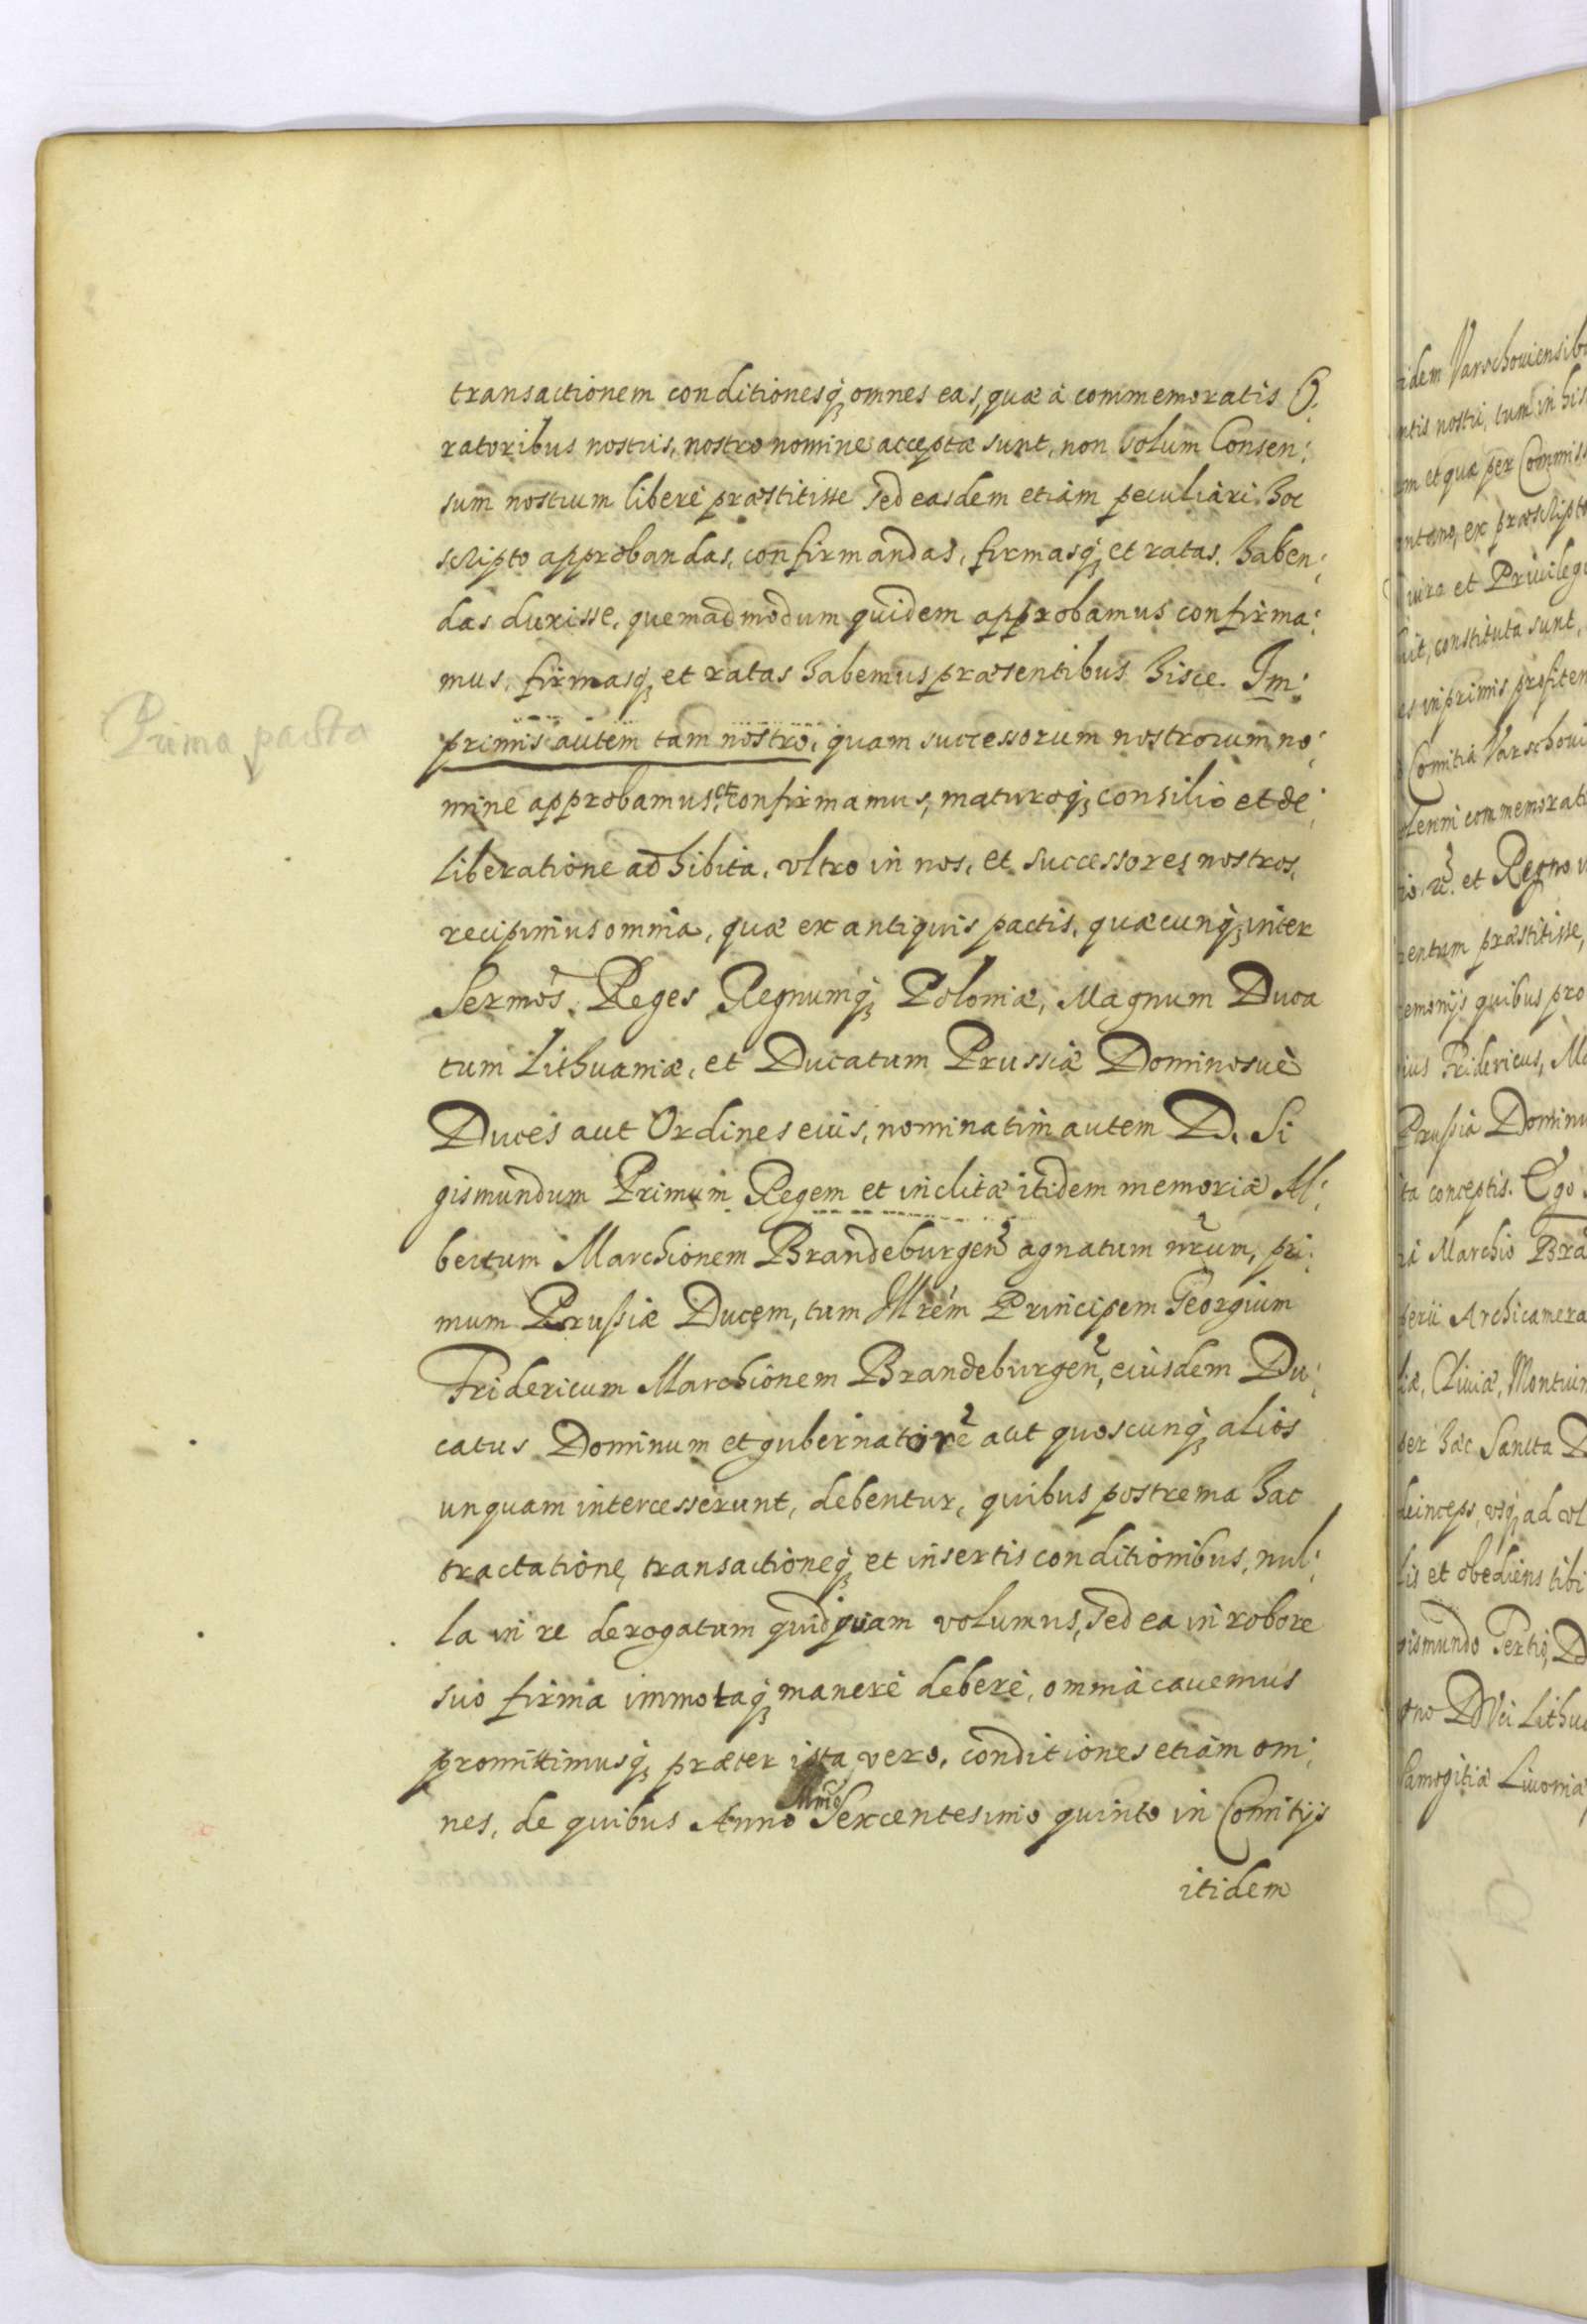 transactionem conditionesq́ꝫ omnes eas, quæ à commemoratis O:
ratoribus nostris, nostro nomine acceptæ sunt, non solum Consen:
sum nostrum liberè præstitisse sed easdem etiam peculiari hoc
scripto approbandas, confirmandas, firmasq́ꝫ et ratas haben:
das duxisse, quemadmodum quidem approbamus confirma:
mus, firmasq́ꝫ et ratas habemus præsentibus hisce. Im:
Prima pacta
primis autem tam nostro, quam successorum nostrorum no:
mine approbamus et confirmamus, maturoq́ꝫ consilio et de:
liberatione adhibita, vltro in nos, et successores nostros,
recipimus omnia, quæ ex antiquis pactis, quæcunq́ꝫ inter
Sermos. Reges Regnumq́ꝫ Poloniæ, Magnum Duca
tum Lithuaniæ, et Ducatum Prussiæ Dominosuè
Duces aut Ordines eius, nominatim autem D. Si
gismundum Primum Regem et inclitæ itidem memoriæ Al:
bertum Marchionem Brandeburgen̄ agnatum nr̄um, pri:
mum Prussiæ Ducem, tum Illrém Principem Georgium
Fridericum Marchionem Brandeburgen̄, eiusdem Du:
catus Dominum et gubernatorē aut quoscunq́ꝫ alios
unquam intercesserunt, debentur, quibus postrema hac
tractatione, transactioneq́ꝫ et insertis conditionibus, nul:
la in re derogatum quidquam volumus, sed ea in robore
suo firma immotaq́ꝫ manere debere, omnia cavemus
promittimusq́ꝫ præter ista vero, conditiones etiam om:
nes, de quibus Anno Mmo Sexcentesimo quinto in Comitijs
itidem
itidem Varschouiensib
ntis nostri, tum in his
em et quæ per Commiss
ex præscripto
iura et Privilegi
uit, constituta sunt,
es inprimis profitem
Comitia Varschoui
lenni commemorati
et Regno
entum præstitisse,
emonijs quibus pro
ius Fridericus, Ma
Prussia Dominu
ta conceptis. Ego
Marchio Bra
perii Archicamera
iæ, Cliuiæ, Montium
per hæc Sancta D
deinceps, usq́ꝫ ad vl
lis et obediens tibi
gismundo Tertio, D
gno D Lithua
Samogitiæ Liuoniæ,